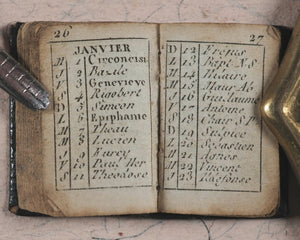 26
JANVIER
M 1 Circoncisi
J 2 Bazile
V 3 Genevieve
S 4 Rigobert
D 5 Simeon
L 6 Epiphanie
M 7 Theau
M 8 Lucien
J 9 Furcy
V 10 Paul Her
S 11 Theodose
27
D 12
L 13 Bapt N.S
M 14 Hilaire
M 15 Maur Ab
J 16 Guillaume
V 17 Antoine
S 18 Chair S P
D 19 Sulpice
L 20 Sebastien
M 21 Agnes
M 22 Vincent
J 23 Ildefonse